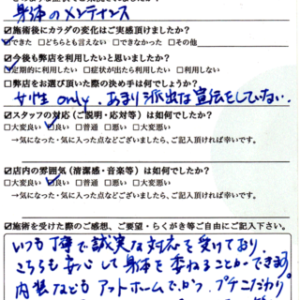 身体のメンテナンス
☑施術後にカラダの変化はご実感頂けましたか?
☑できた □どちらとも言えない □できなかった □その他
☑今後も弊店を利用したいと思いましたか?
☑定期的に利用したい □症状が出たら利用したい □利用しない
□弊店をお選び頂いた際の決め手は何でしょうか?
女性only、あまり派出な宣伝をしていない。
☑スタッフの対応(ご説明・応対等)は如何でしたか?
□大変良い ☑良い □普通 □悪い □大変悪い
→気になった・気に入った点などございましたら、ご記入頂ければ幸いです。
☑店内の雰囲気(清潔感・音楽等)は如何でしたか?
□大変良い ☑良い □普通 □悪い □大変悪い
→気になった・気に入った点などございましたら、ご記入頂ければ幸いです。
☑施術を受けた際のご感想、ご要望・らくがき等ご自由にご記入下さい。
いつも丁寧で誠実な対応を受けており、
こちらも安心して身体を委ねることができます
内装なども アットホームで、かつ、プチこだわり